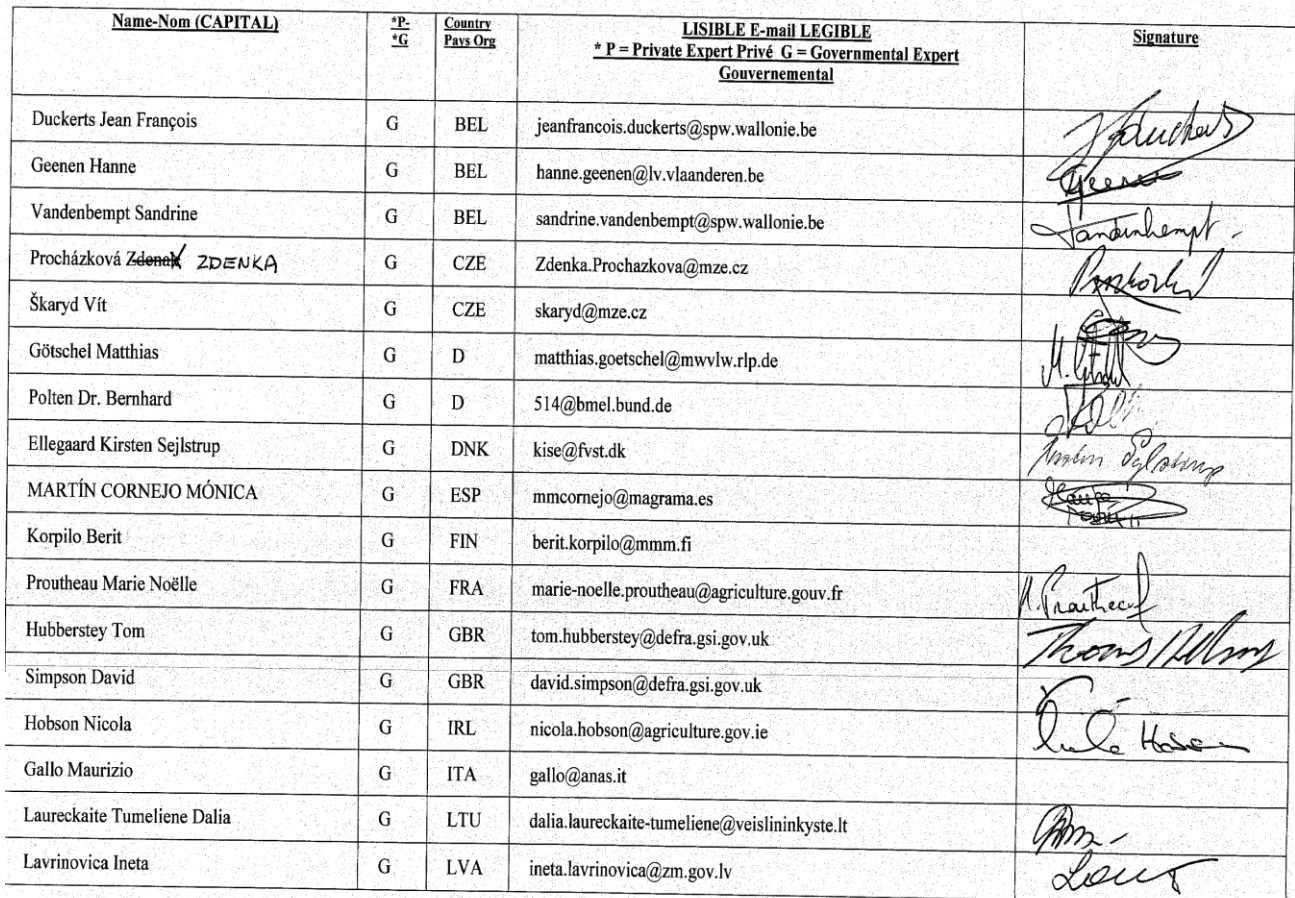 Name-Nom (CAPITAL) *P- *G Country Pays Org LISIBLE E-mail LEGIBLE * P = Private Expert Privé G = Governmental Expert Gouvernemental Signature
Duckerts Jean François G BEL jeanfrancois.duckerts@spw.wallonie.be
Geenen Hanne G BEL hanne.geenen@lv.vlaanderen.be
Vandenbempt Sandrine G BEL sandrine.vandenbempt@spw.wallonie.be Vandenbempt
Procházková Zdenak ZDENKA G CZE Zdenka.Prochazkova@mze.cz
Škaryd Vít G CZE skaryd@mze.cz
Götschel Matthias G D matthias.goetschel@mwvlw.rlp.de
Polten Dr. Bernhard G D 514@bmel.bund.de
Ellegaard Kirsten Sejlstrup G DNK kise@fvst.dk
MARTÍN CORNEJO MÓNICA G ESP mmcornejo@magrama.es
Korpilo Berit G FIN berit.korpilo@mmm.fi
Proutheau Marie Noëlle G FRA marie-noelle.proutheau@agriculture.gouv.fr
Hubberstey Tom G GBR tom.hubberstey@defra.gsi.gov.uk
Simpson David G GBR david.simpson@defra.gsi.gov.uk
Hobson Nicola G IRL nicola.hobson@agriculture.gov.ie
Gallo Maurizio G ITA gallo@anas.it
Laureckaite Tumeliene Dalia G LTU dalia.laureckaite-tumeliene@veislininkyste.lt
Lavrinovica Ineta G LVA ineta.lavrinovica@zm.gov.lv